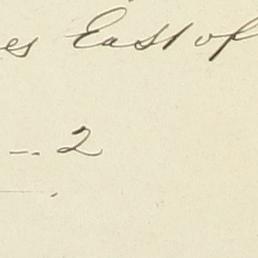 es East of
-- 2